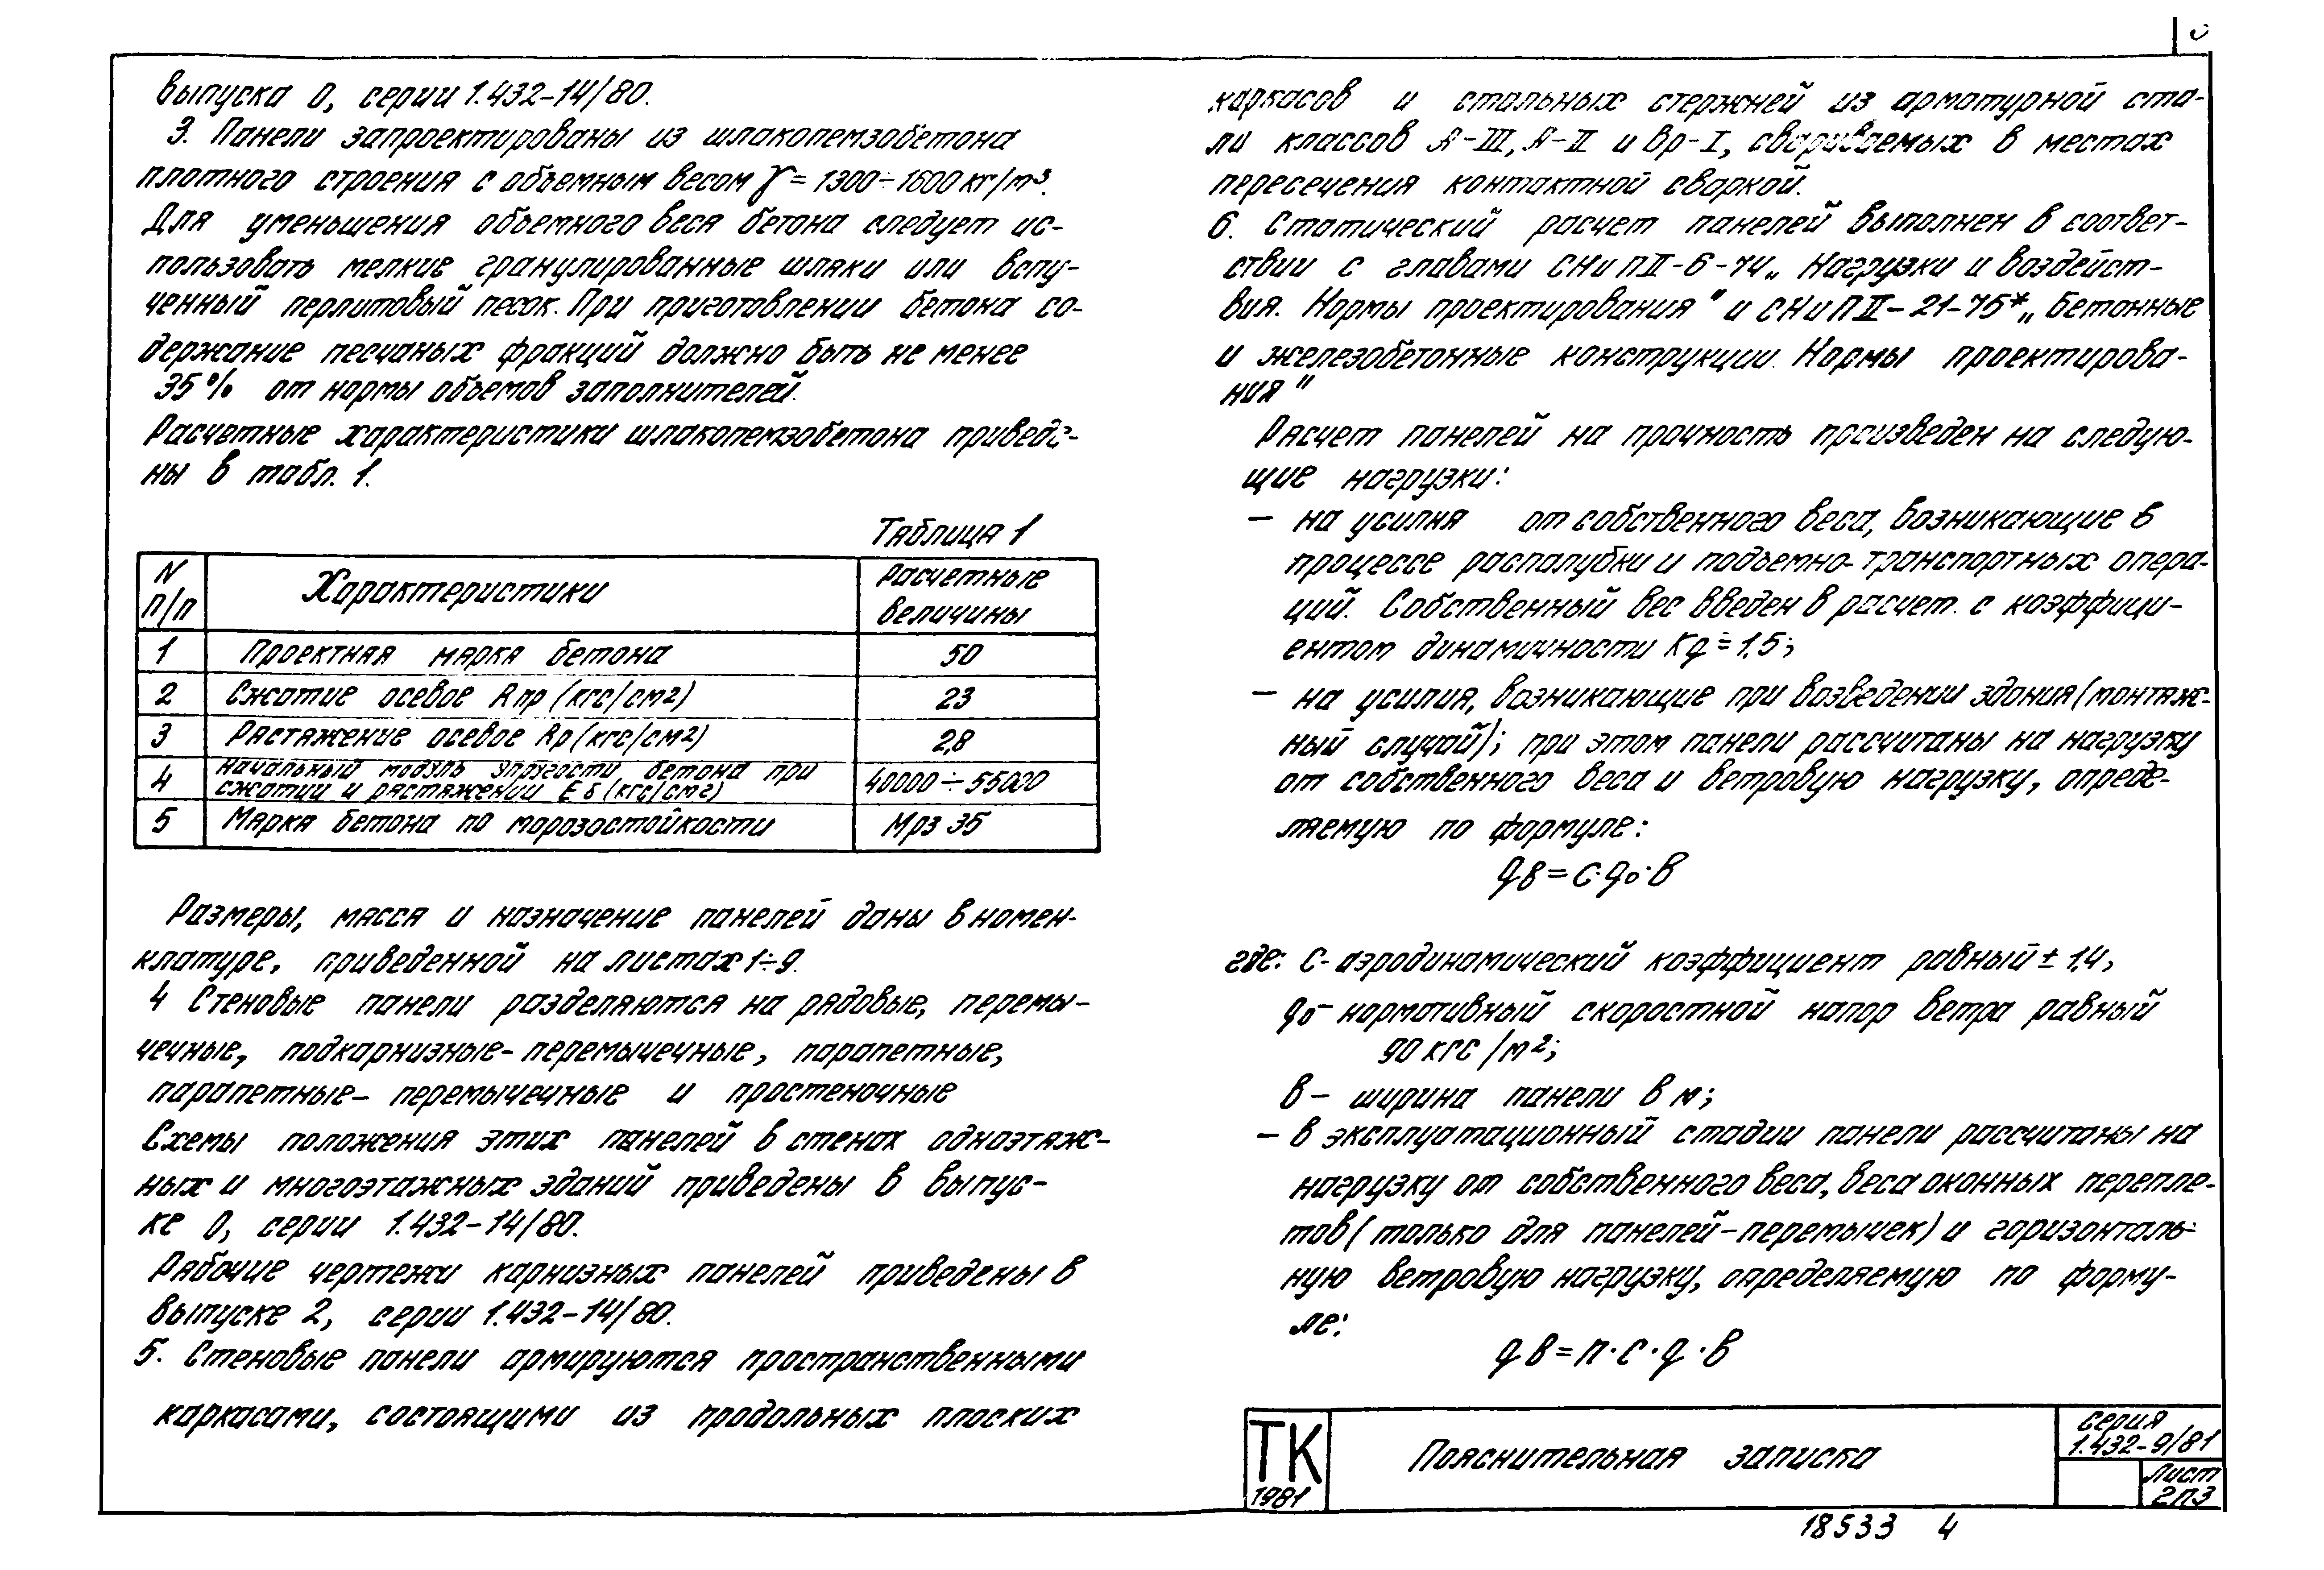 выпуска 0, серии 1.432-14/80.
3. Панели запроектированы из шлакопемзобетона
плотного строения с объемным весом γ = 1300÷1600 кг/м³.
Для уменьшения объемного веса бетона следует ис-
пользовать мелкие гранулированные шлаки или вспу-
ченный перлитовый песок. При приготовлении бетона со-
держание песчаных фракций должно быть не менее
35% от нормы объемов заполнителей.
Расчетные характеристики шлакопемзобетона приведе-
ны в табл. 1.
Таблица 1
N п/п | Характеристики | Расчетные величины
1 | Проектная марка бетона | 50
2 | Сжатие осевое Rпр (кгс/см²) | 23
3 | Растяжение осевое Rр (кгс/см²) | 2,8
4 | Начальный модуль упругости бетона при сжатии и растяжении Еб (кгс/см²) | 40000÷55000
5 | Марка бетона по морозостойкости | Мрз 35
Размеры, масса и назначение панелей даны в номен-
клатуре, приведенной на листах 1÷9.
4 Стеновые панели разделяются на рядовые, перемы-
чечные, подкарнизные-перемычечные, парапетные,
парапетные-перемычечные и простеночные
Схемы положения этих панелей в стенах одноэтаж-
ных и многоэтажных зданий приведены в выпус-
ке 0, серии 1.432-14/80.
Рабочие чертежи карнизных панелей приведены в
выпуске 2, серии 1.432-14/80.
5. Стеновые панели армируются пространственными
каркасами, состоящими из продольных плоских
каркасов и стальных стержней из арматурной ста-
ли классов А-III, А-II и Вр-I, свариваемых в местах
пересечения контактной сваркой.
6. Статический расчет панелей выполнен в соответ-
ствии с главами СНиП II-6-74 „Нагрузки и воздейст-
вия. Нормы проектирования" и СНиП II-21-75* „Бетонные
и железобетонные конструкции. Нормы проектирова-
ния"
Расчет панелей на прочность произведен на следую-
щие нагрузки:
— на усилия от собственного веса, возникающие в
процессе распалубки и подъемно-транспортных опера-
ций. Собственный вес введен в расчет. с коэффици-
ентом динамичности Kg = 1,5;
— на усилия, возникающие при возведении здания (монтаж-
ный случай); при этом панели рассчитаны на нагрузку
от собственного веса и ветровую нагрузку, опреде-
ляемую по формуле:
qв = c·q₀·в
где: С- аэродинамический коэффициент равный ± 1,4,
q₀- нормативный скоростной напор ветра равный
90 кгс/м²;
в - ширина панели в м;
- в эксплуатационный стадии панели рассчитаны на
нагрузку от собственного веса, веса оконных перепле-
тов (только для панелей-перемычек) и горизонталь-
ную ветровую нагрузку, определяемую по форму-
ле:
qв = n·c·q·в
ТК
1981
Пояснительная записка
Серия
1.432-9/81
Лист
2ПЗ
18533 4